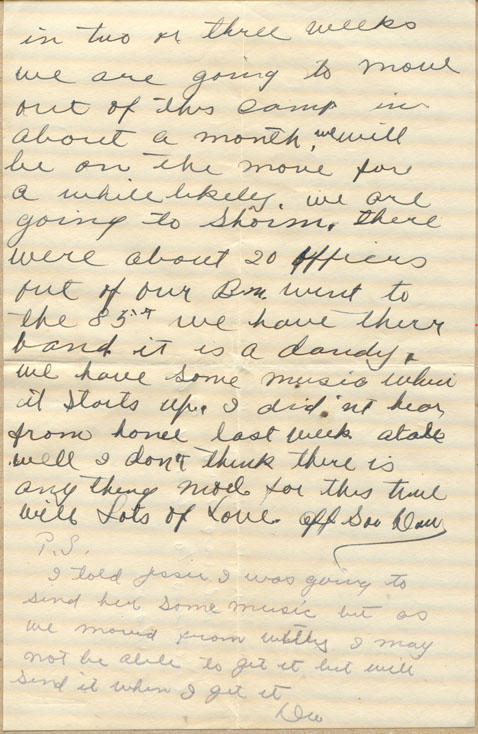 in two or three weeks
we are going to move
out of this camp in
about a month, we will
be on the move for
a while likely. we are
going to Shorm. there
were about 20 officers
out of our Bn went to
the 85th we have therr
band it is a dandy.
we have some music when
it starts up. I did'nt hear
from home last week atall
well I don't think there is
any thing more for this time
with Lots of Love. Aff Son
P.S.
I told Jessie I was going to
send her some music but as
we moved from I may
not be able to get it but will
send it when I get it